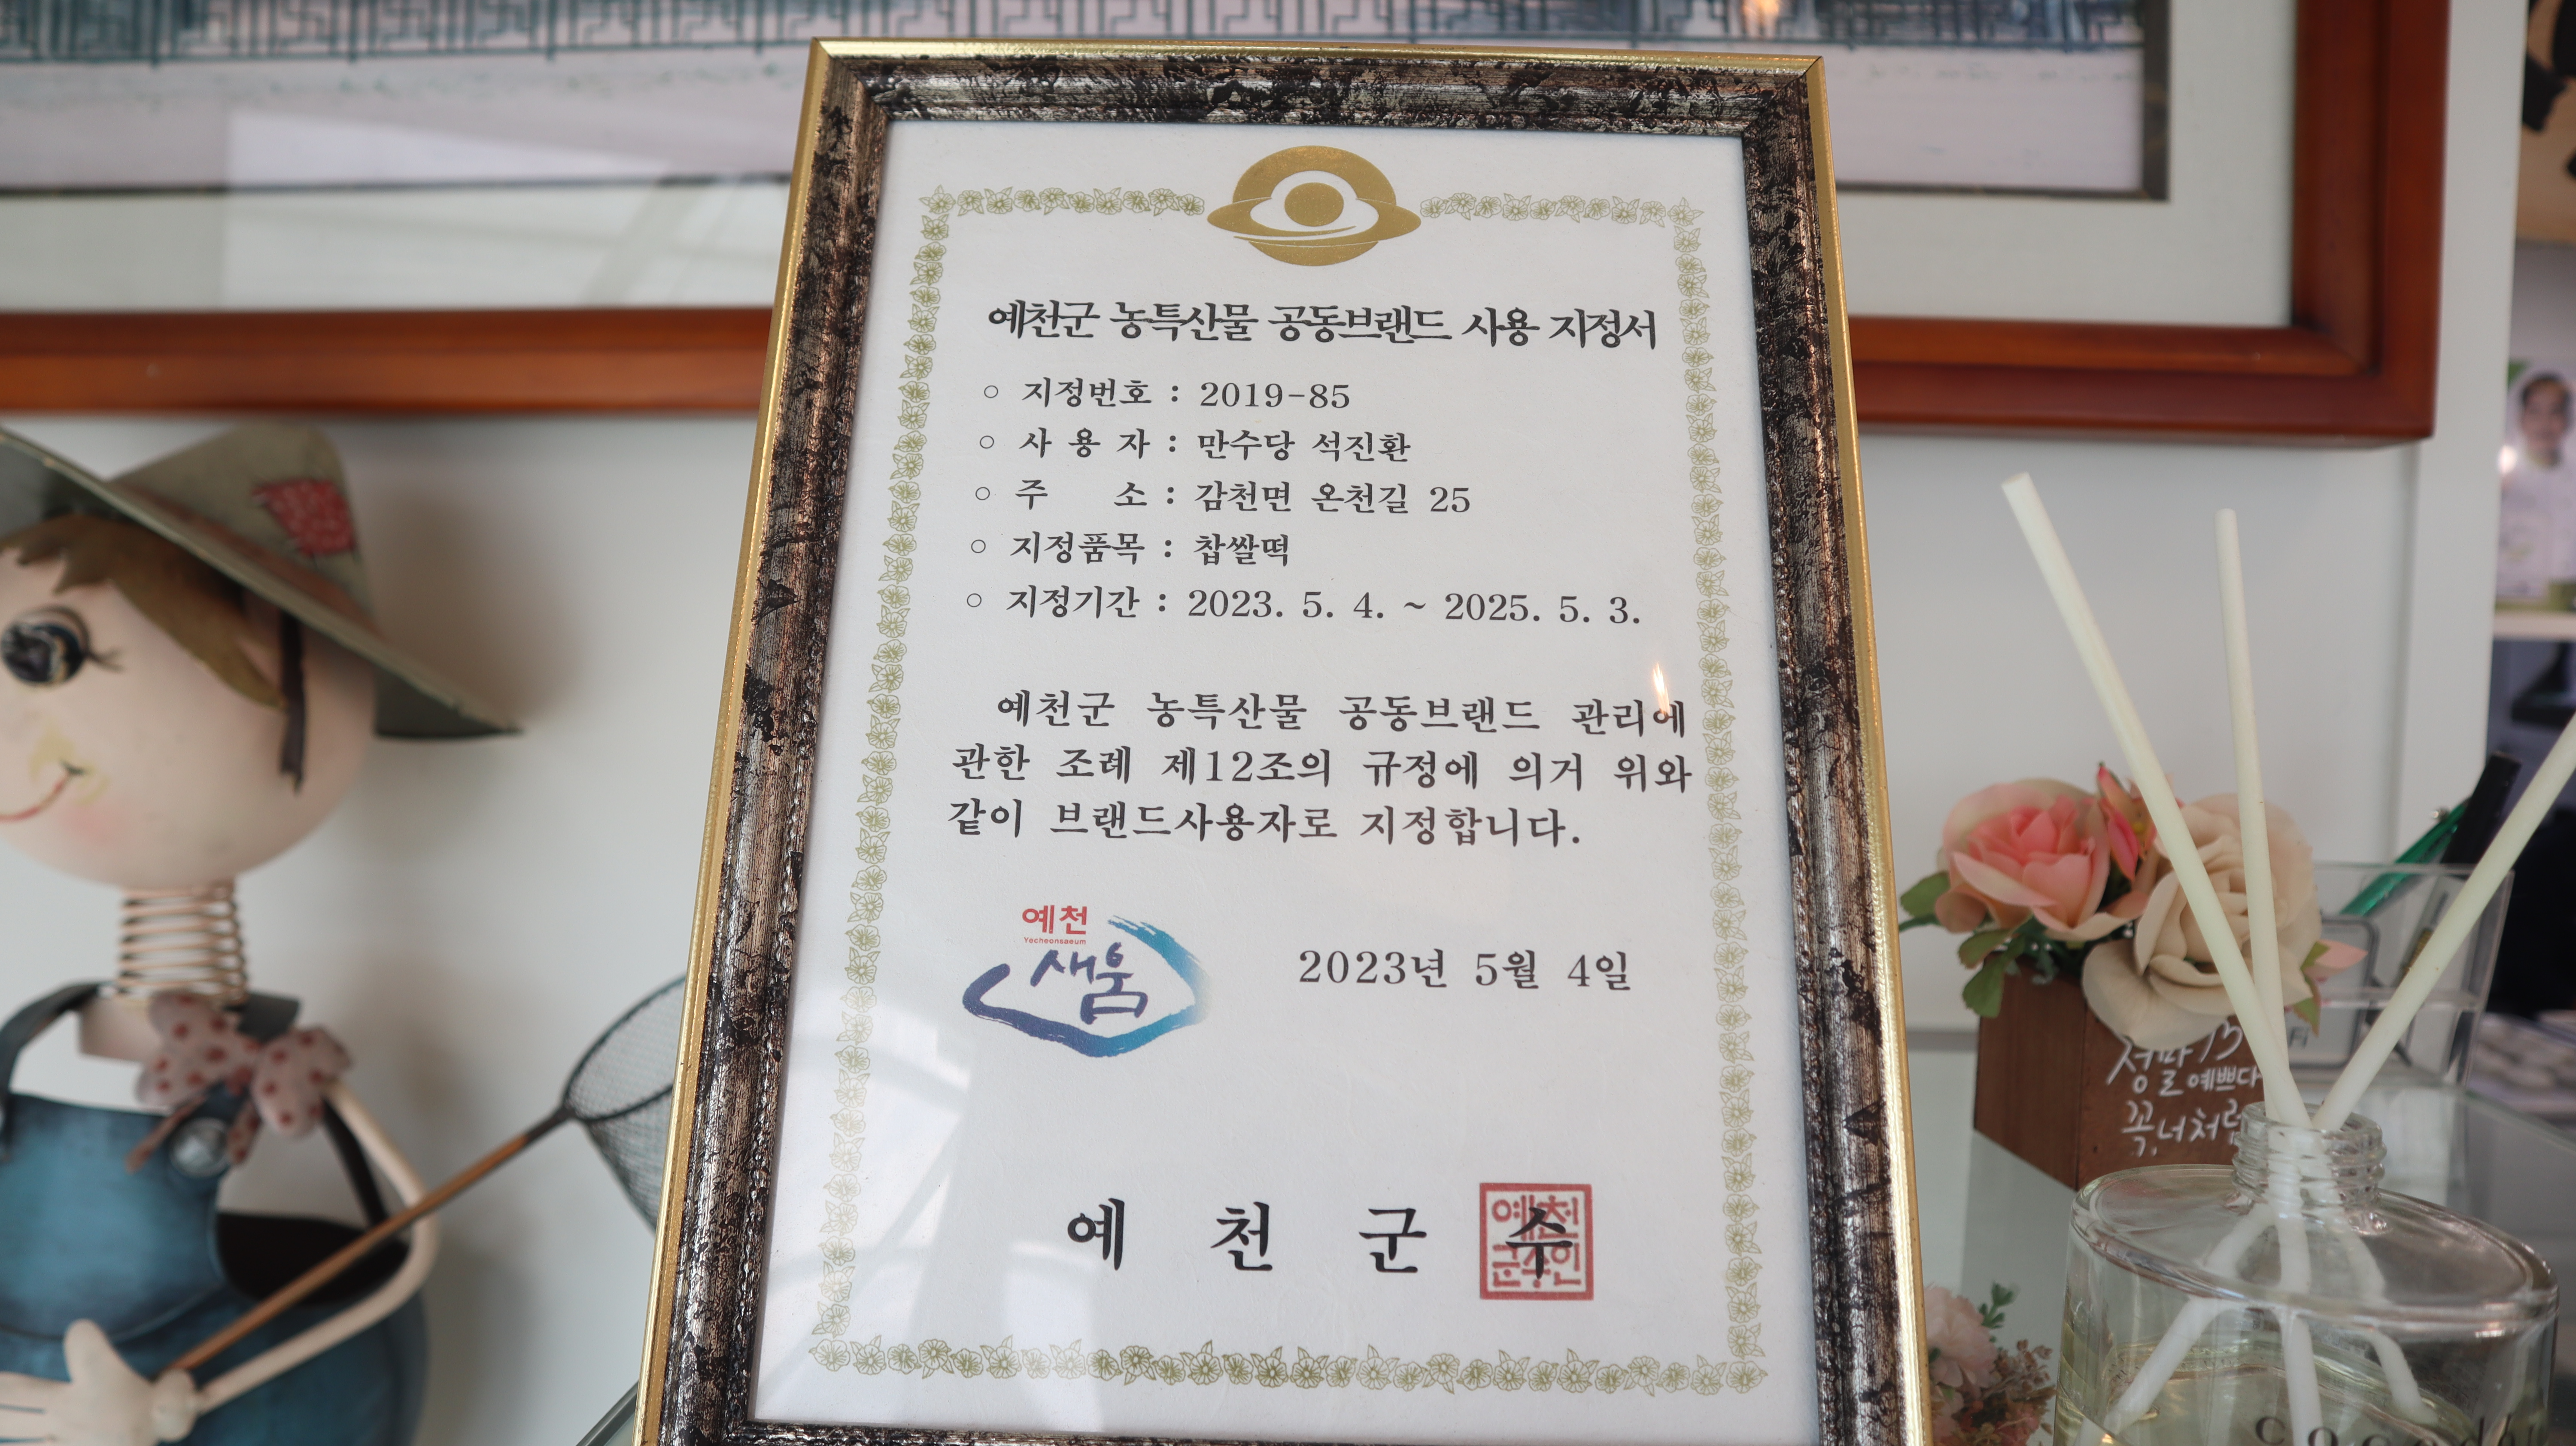 예천군 농특산물 공동브랜드 사용 지정서
○ 지정번호 : 2019-85
○ 사 용 자 : 만수당 석진환
○ 주 소 : 감천면 온천길 25
○ 지정품목 : 찹쌀떡
○ 지정기간 : 2023. 5. 4. ~ 2025. 5. 3.
예천군 농특산물 공동브랜드 관리에
관한 조례 제12조의 규정에 의거 위와
같이 브랜드사용자로 지정합니다.
예천
Yecheonsaeum
새움
2023년 5월 4일
예 천 군 수
예천
군수인
정말
예쁘다
꼭, 너처럼